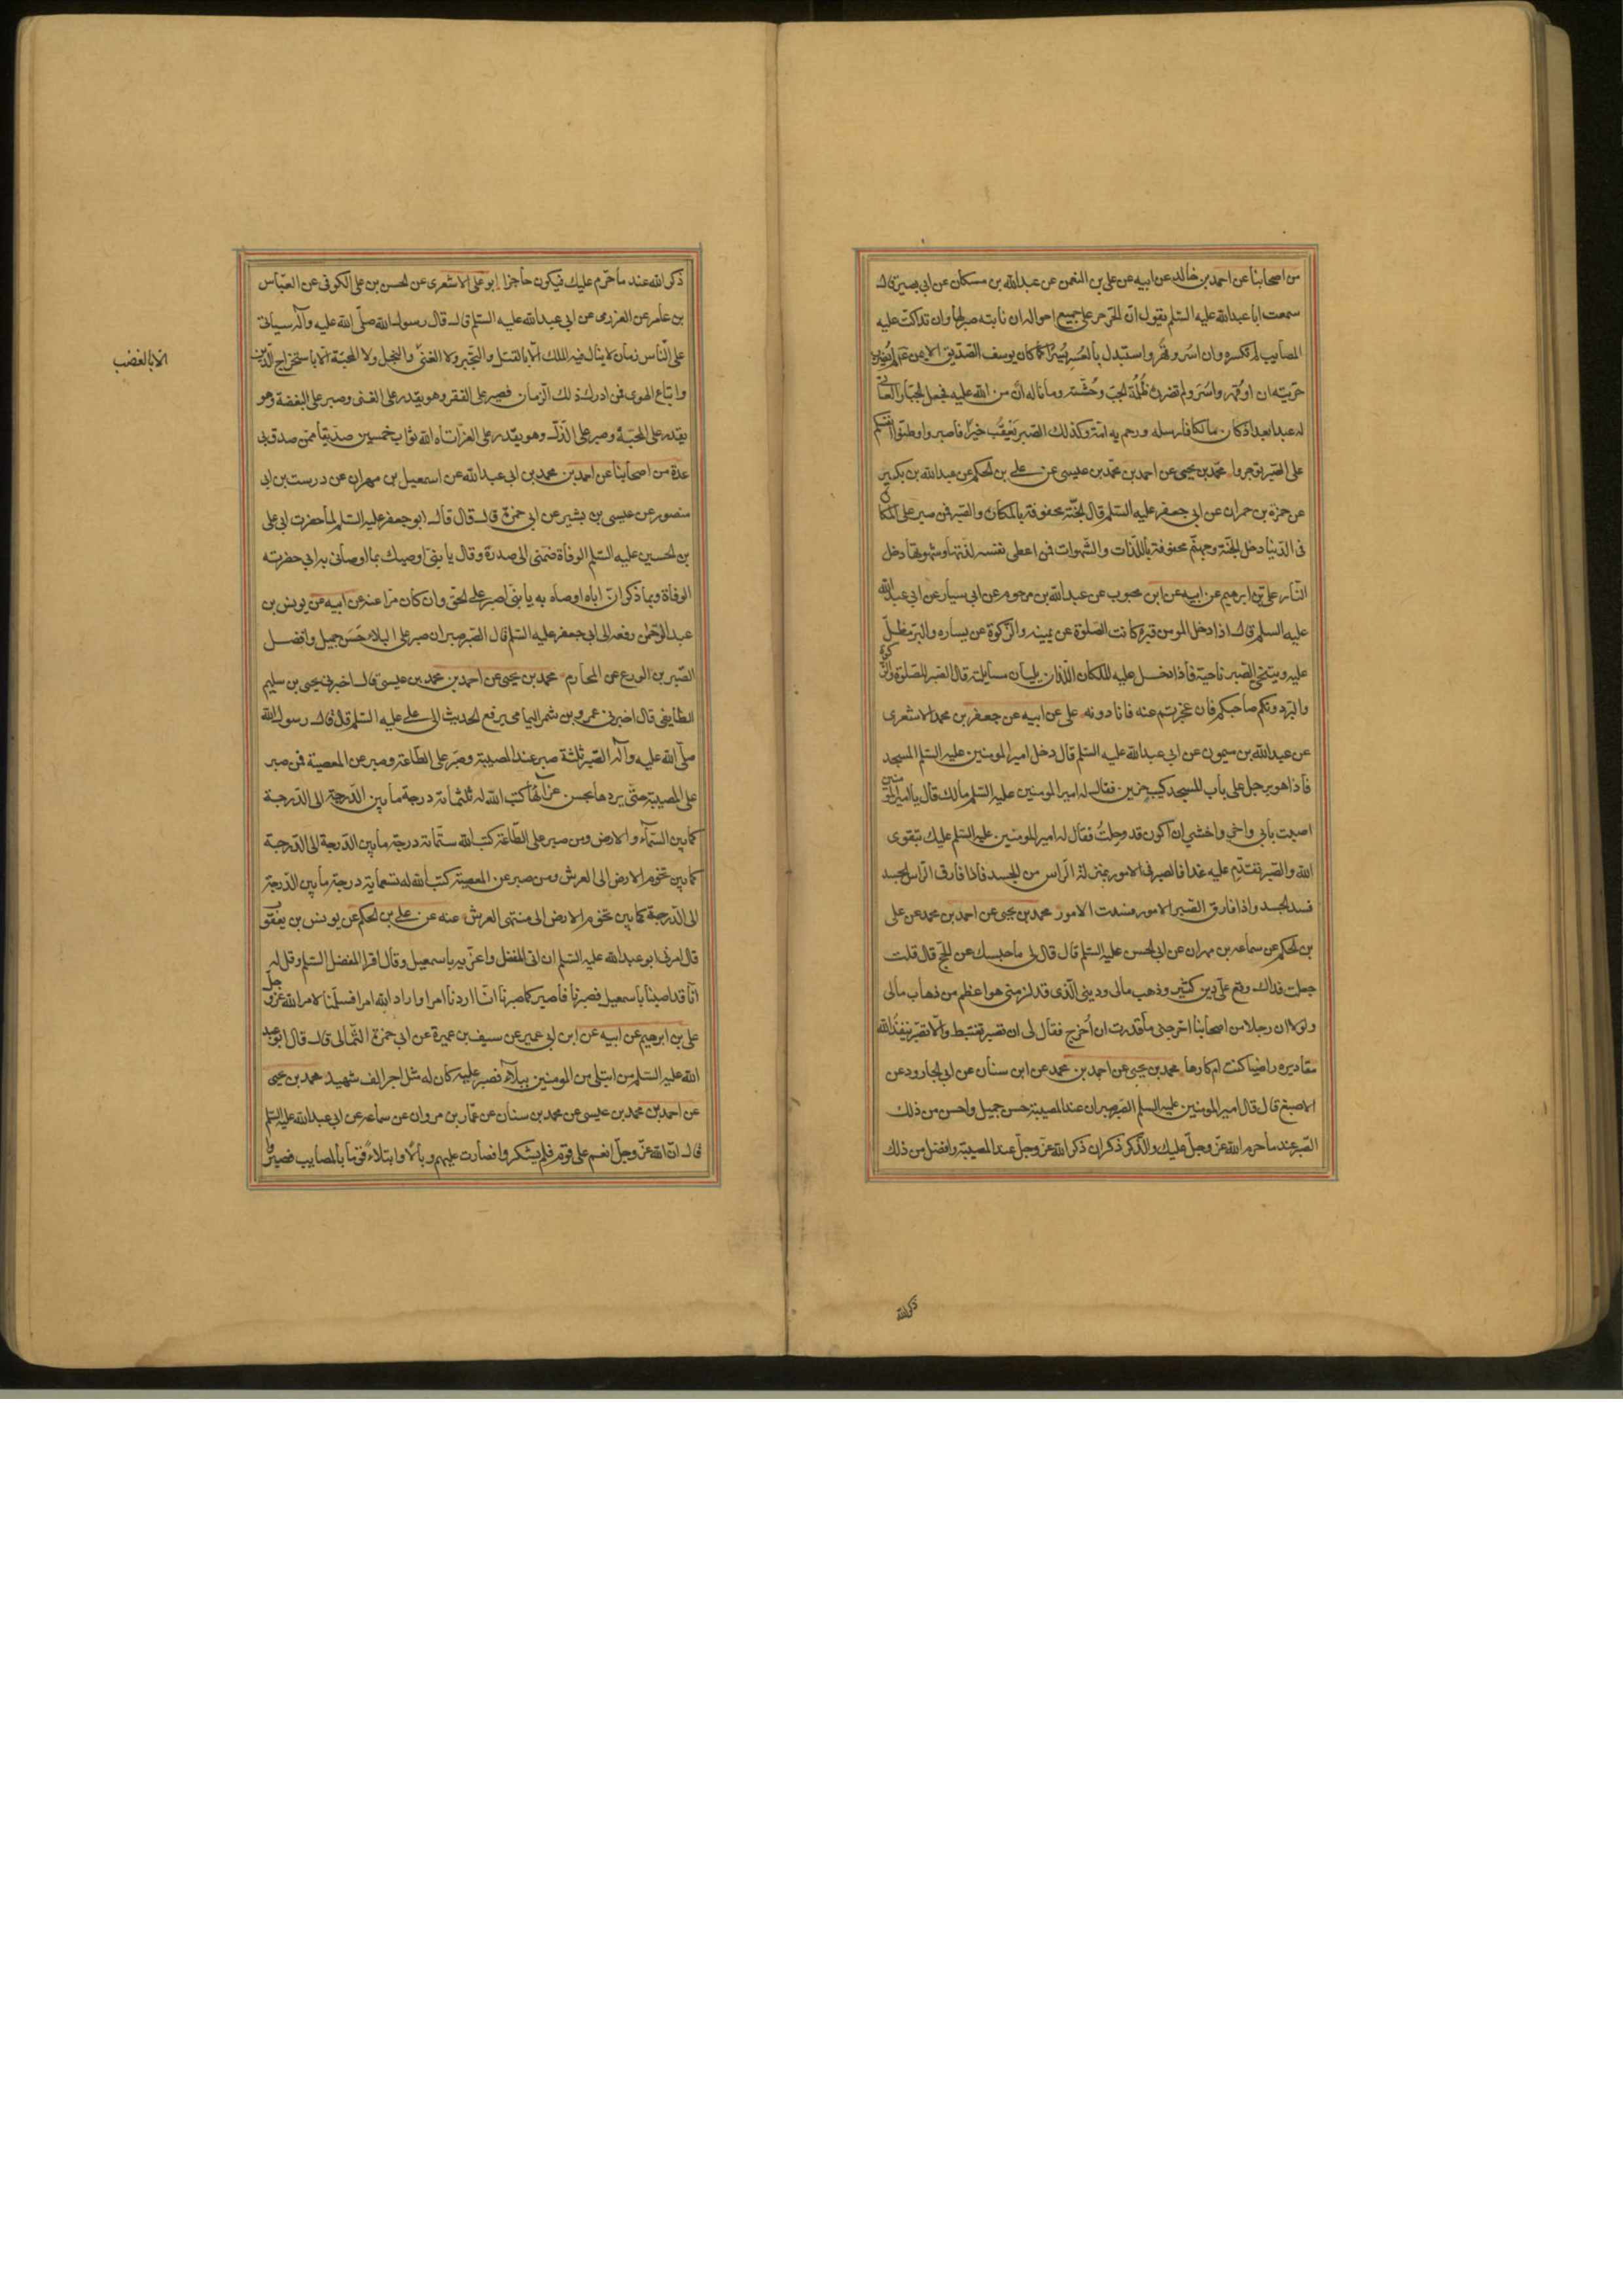 من اصحابنا عن احمد بن خالد عن ابيه عن علي بن النعمن عن عبد الله بن مسكان عن ابي بصير قال
سمعت ابا عبد الله عليه السلم يقول ان الحر حر على جميع احواله ان نابته نائبة صبر لها وان تداكت عليه
المصايب لم تكسره وان اسر وقهر واستبدل باليسر عسرا كما كان يوسف الصديق الامين عم لم يضرر
حريته ان اوقهر واسر ولم تضرره ظلمة الجب ووحشته وما ناله ان من الله عليه فجعل الجبار العاتي
له عبدا بعد اذ كان مالكا فارسله ورحم به امة وكذلك الصبر يعقب خيرا فاصبروا وطنوا انفسكم
على الصبر توجروا محمد بن يحيى عن احمد بن محمد بن عيسى عن علي بن الحكم عن عبد الله بن بكير
عن حمزة بن حمران عن ابي جعفر عليه السلم قال الجنة محفوفة بالمكاره والصبر فمن صبر على المكاره
في الدنيا دخل الجنة وجهنم محفوفة باللذات والشهوات فمن اعطى نفسه لذتها وشهوتها دخل
النار علي بن ابرهيم عن ابيه عن ابن محبوب عن عبد الله بن مرحوم عن ابي سيار عن ابي عبد الله
عليه السلم قال اذا دخل المومن قبره كانت الصلوة عن يمينه والزكوة عن يساره والبر مظل
عليه ويتنحى الصبر ناحية فاذا دخل عليه الملكان اللذان يليان مسايلته قال الصبر للصلوة والزكوة
والبر دونكم صاحبكم فان عجزتم عنه فانا دونه علي عن ابيه عن جعفر بن محمد الاشعري
عن عبد الله بن ميمون عن ابي عبد الله عليه السلم قال دخل امير المومنين عليه السلم المسجد
فاذا هو برجل على باب المسجد كيب حزين فقال له امير المومنين عليه السلم مالك قال يا امير المومنين
اصبت بابي واخي واخشى ان اكون قد وجلت فقال له امير المومنين عليه السلم عليك بتقوى
الله والصبر تقدم عليه غدا فالصبر في الامور بمنزلة الراس من الجسد فاذا فارق الراس الجسد
فسد الجسد واذا فارق الصبر الامور فسدت الامور محمد بن يحيى عن احمد بن محمد عن علي
بن الحكم عن سماعه بن مهران عن ابي الحسن عليه السلم قال قال لي ما حبسك عن الحج قال قلت
جعلت فداك وقع علي دين كثير وذهب مالي وديني الذي قد لزمني هو اعظم من ذهاب مالي
ولولا ان رجلا من اصحابنا اخرجني ما قدرت ان اخرج فقال لي ان تصبر تغتبط والا تصبر ينفذ الله
مقاديره راضيا كنت ام كارها محمد بن يحيى عن احمد بن محمد عن ابن سنان عن ابي الجارود عن
الاصبغ قال قال امير المومنين عليه السلم الصبر صبران عند المصيبة حسن جميل واحسن من ذلك
الصبر عند ما حرم الله عز وجل عليك والذكر ذكران ذكر الله عز وجل عند المصيبة وافضل من ذلك
ذكر الله
ذكر الله عند ما حرم عليك فيكون حاجزا ابو علي الاشعري عن الحسن بن علي الكوفي عن العباس
بن عامر عن العزرمي عن ابي عبد الله عليه السلم قال قال رسول الله صلى الله عليه وآله سياتي
على الناس زمان لا ينال فيه الملك الا بالقتل والتجبر ولا الغنى والبخل ولا المحبة الا باستخراج الدين
الا بالغضب
واتباع الهوى فمن ادرك ذلك الزمان فصبر على الفقر وهو يقدر على الغنى وصبر على البغضة وهو
يقدر على المحبة وصبر على الذل وهو يقدر على العز اتاه الله ثواب خمسين صديقا ممن صدق بي
عدة من اصحابنا عن احمد بن محمد بن ابي عبد الله عن اسمعيل بن مهران عن درست بن ابي
منصور عن عيسى بن بشير عن ابي حمزة قال قال ابو جعفر عليه السلم لما حضرت ابي علي
بن الحسين عليه السلم الوفاة ضمني الى صدره وقال يا بني اوصيك بما اوصاني به ابي حضرته
الوفاة وبما ذكر ان اباه اوصاه به يا بني اصبر على الحق وان كان مرا عنه عن ابيه عن يونس بن
عبد الرحمن رفعه الى ابي جعفر عليه السلم قال الصبر صبران صبر على البلاء حسن جميل وافضل
الصبرين الورع عن المحارم محمد بن يحيى عن احمد بن محمد بن عيسى قال اخبرني يحيى بن سليم
الطايفي قال اخبرني عمرو بن شمر اليماني يرفع الحديث الى علي عليه السلم قال قال رسول الله
صلى الله عليه وآله الصبر ثلثة صبر عند المصيبة وصبر على الطاعة وصبر عن المعصية فمن صبر
على المصيبة حتى يردها بحسن عزائها كتب الله له ثلثمائة درجة ما بين الدرجة الى الدرجة
كما بين السماء والارض ومن صبر على الطاعة كتب الله ستمائة درجة ما بين الدرجة الى الدرجة
كما بين تخوم الارض الى العرش ومن صبر عن المعصية كتب الله له تسعماية درجة ما بين الدرجة
الى الدرجة كما بين تخوم الارض الى منتهى العرش عنه عن علي بن الحكم عن يونس بن يعقوب
قال امرني ابو عبد الله عليه السلم ان اتي المفضل واعزيه باسمعيل وقال اقرا المفضل السلم وقل له
انا قد اصبنا باسمعيل فصبرنا فاصبر كما صبرنا انا اردنا امرا واراد الله امرا فسلمنا لامر الله عز وجل
علي بن ابرهيم عن ابيه عن ابن ابي عمير عن سيف بن عميرة عن ابي حمزة الثمالي قال قال ابو عبد
الله عليه السلم من ابتلي من المومنين ببلاء فصبر عليه كان له مثل اجر الف شهيد محمد بن يحيى
عن احمد بن محمد بن عيسى عن محمد بن سنان عن عمار بن مروان عن سماعه عن ابي عبد الله عليه السلم
قال ان الله عز وجل انعم على قوم فلم يشكروا فصارت عليهم وبالا وابتلاء قوما بالمصايب فصبروا